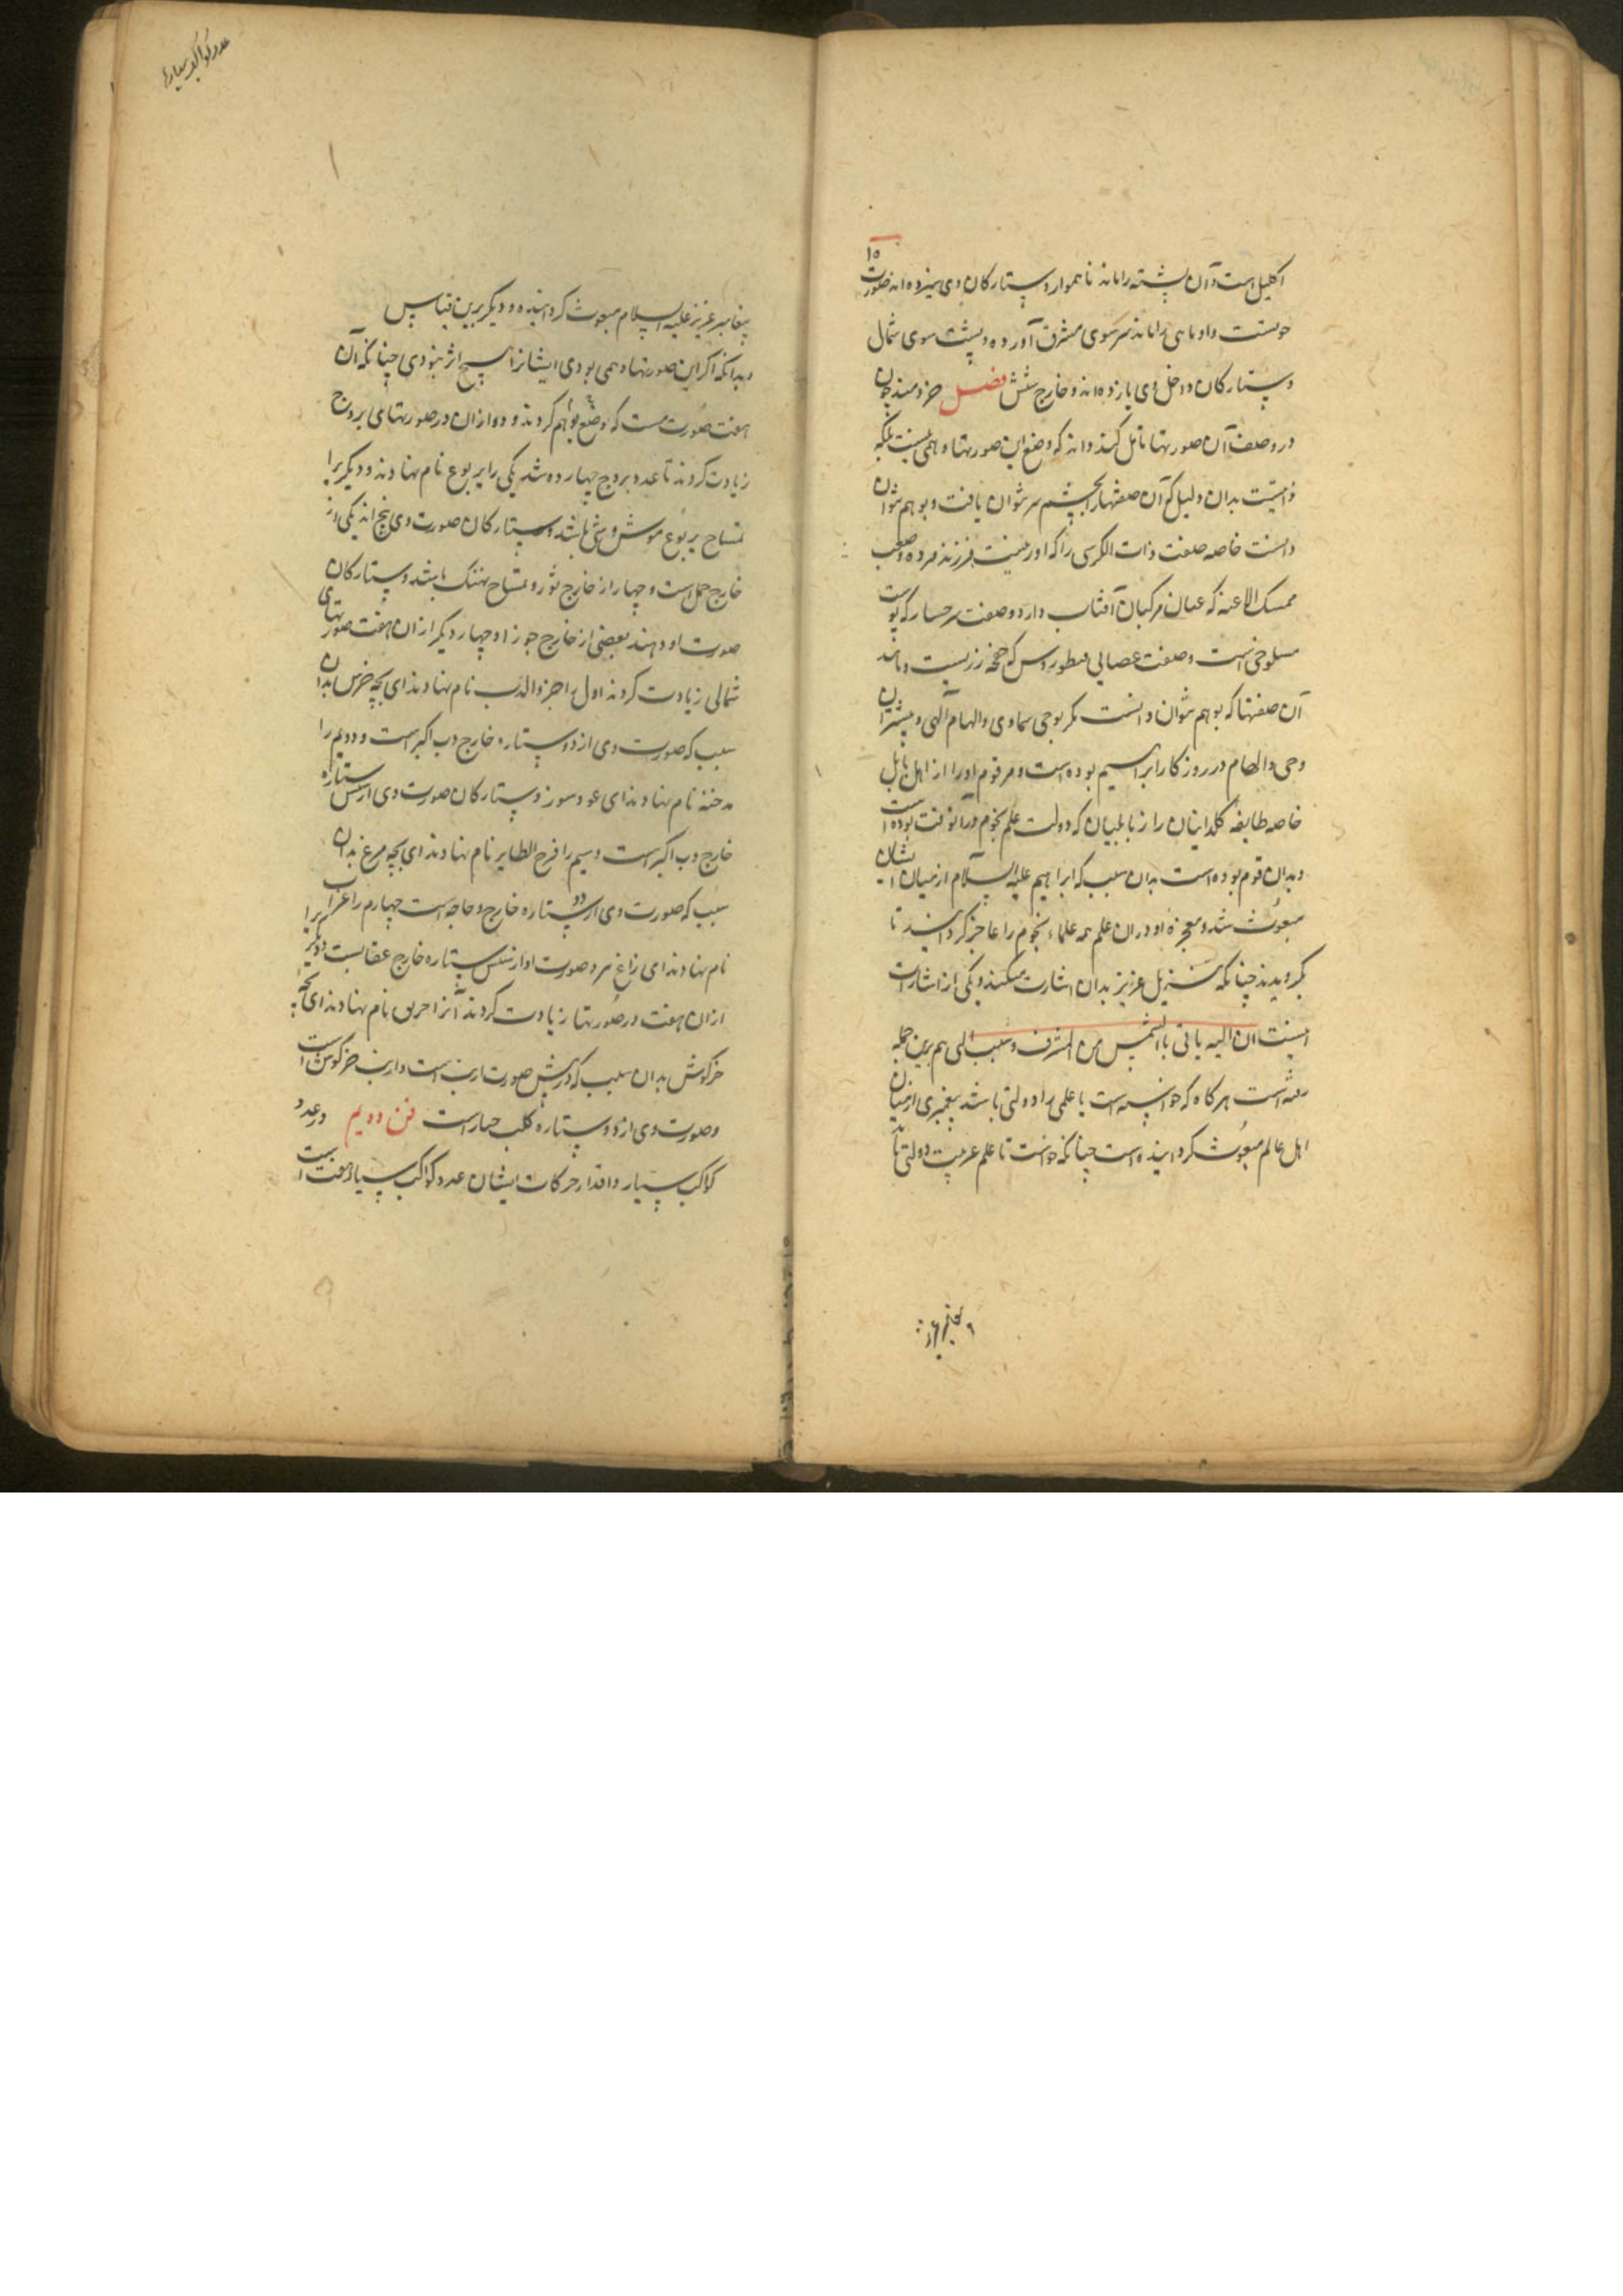 ۱۵
اکلیل است و آن پشته را ماند ناهموار و ستارکان وی سیزده اند صورت
حوتست و او ماهی را ماند سر سوی مشرق آورده و پشت سوی شمال
و ستارکان داخل وی یازده اند و خارج شش فصل خردمند چون
در وصف آن صورتها تامل کند داند که وضع این صورتها وهمی نیست بلکه
بدان دلیل که آن صفتها را بچشم سر نتوان یافت و بوهم نتوان
دانست خاصه صفت ذات الکرسی را که او فرزند مرده و صفت
ممسک الاعنه که عنان مرکبان آفتاب دارد و صفت که پوست
مسلوخی است و صفت عصایی و مانند
آن صفتها که بوهم نتوان دانست مکر بوحی سماوی و الهام الهی و بیشترین
وحی و الهام در روزکار ابراهیم بوده است و مر قوم او را از اهل بابل
خاصه طایفه کلدانیان را از بابلیان که دولت علم نجوم در آنوقت بوده است
و بدان قوم بوده است بدان سبب که ابراهیم علیه السلام از میان ایشان
مبعوث شد و معجزه او در آن علم همه علماء نجوم را عاجز کردانید تا
بکرویدند چنانکه تنزیل عزیز بدان اشارت میکند و یکی از اشارات
اینست ان الیه یاتی بالشمس من المشرق و سبب الهی هم برین جمله
رفته است هر کاه که خواسته است تا علمی را دولتی باشد پیغمبری از میان
اهل عالم مبعوث کردانیده است چنانکه خواست تا علم عربیت دولتی یابد
پیغامبر عزیز علیه السلام مبعوث کردانیده و دیکر برین قیاس
و بدانکه اکر این صورتها وهمی بودی ایشانرا هیچ اثر نبودی چنانکه آن
هفت صورت هست که وضع بوهم کردند و دو از ان در صورتهای بروج
زیادت کردند تا عدد بروج چهارده شد یکی را یربوع نام نهادند و دیکر را
تمساح یربوع موش دشتی باشد و ستارکان صورت وی پنج اند یکی از
خارج حمل است و چهار از خارج ثور و تمساح نهنک باشد و ستارکان
صورت او دهند بعضی از خارج جوزا و چهار دیکر از ان هفت صورتهای
شمالی زیادت کردند اول را جرو الدب نام نهادند ای بچه خرس بدان
سبب که صورت وی از دو ستاره خارج دب اکبر است و دویم را
مدخنه نام نهادند ای عود سوز و ستارکان صورت وی از شش ستاره
خارج دب اکبر است و سیم را فرخ الطایر نام نهادند ای بچه مرغ بدان
سبب که صورت وی از دو ستاره خارج دجاجه است چهارم را غراب
نام نهادند ای زاغ سرد صورت او از شش ستاره خارج عقابست و دیکر را
از ان هفت در صورتها زیادت کردند آنرا خرنق نام نهادند ای بچه
خرکوش بدان سبب که در پیش صورت ارنب است و ارنب خرکوش است
و صورت وی از دو ستاره کلب جبار است فن دویم در عدد
کواکب سیار و اقدار حرکات ایشان عدد کواکب سیار هفت است
عدد کواکب سیاره